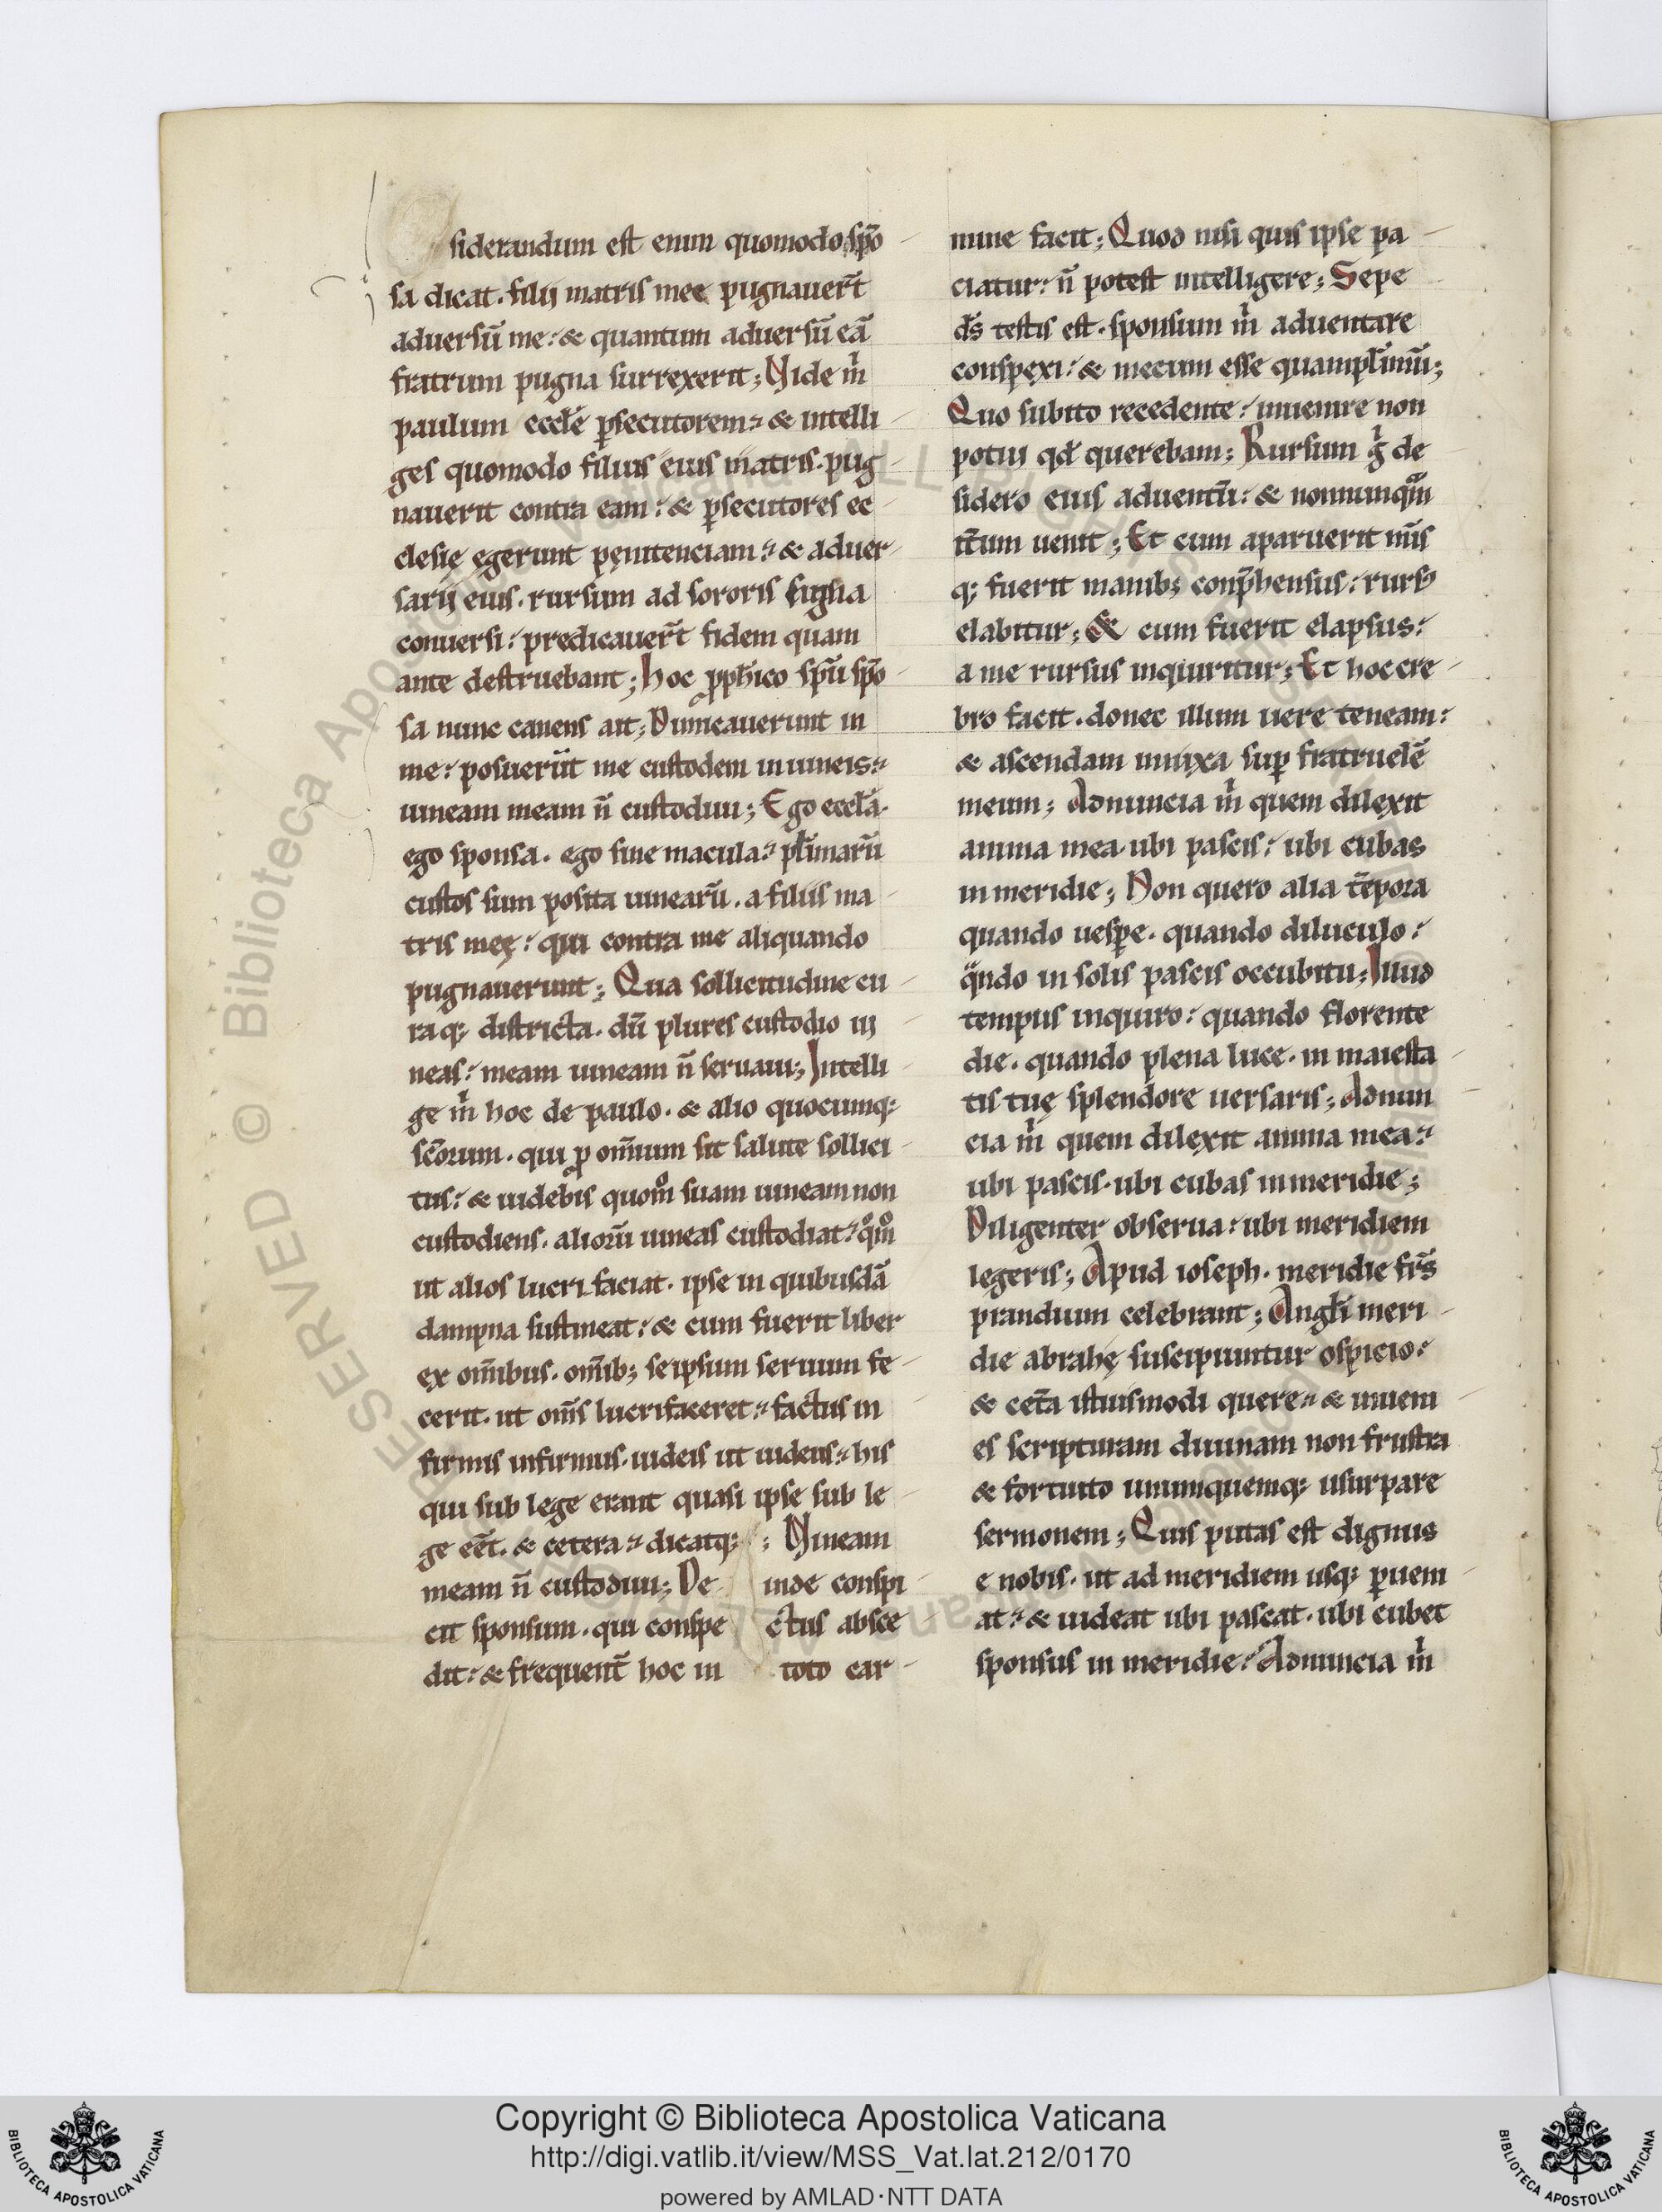 siderandum est enim quomodo spō
sa dicat. filij matris mee pugnauer̄t
aduersū me: & quantum aduersū eā
fratrum pugna surrexerit; Vide m̄
paulum eccl̄e p̱secutorem: & intelli
ges quomodo filius eius matris. pug
nauerit contra eam: & p̱secutores ec
clesię egerunt pęnitenciam: & aduer
sarij eius. rursum ad sororis signa
conuersi: predicauer̄t fidem quam
ante destruebant; hoc ꝓph̄ico sp̄u spō
sa nunc canens ait; Dimicauerunt in
me: posuerūt me custodem in uineis:
uineam meam n̄ custodiui; Ego eccl̄a.
ego sponsa. ego sine macula: pl̄imarū
custos sum posita uinearū. a filiis ma
tris meę: qui contra me aliquando
pugnauerunt; Qua sollicitudine cu
raq; districta. dū plures custodio ui
neas: meam uineam n̄ seruaui; Intelli
ge m̄ hoc de paulo. & alio quocumq;
sc̄orum. qui ꝓ om̄ium sit salute sollici
tus: & uidebis quom̊ suam uineam non
custodiens. aliorū uineas custodiat: q̊m̊
ut alios lucri faciat. ipse in quibusdā
dampna sustineat: & cum fuerit liber
ex om̄ibus. om̄ib; seipsum seruum fe
cerit. ut om̄s lucrifaceret: factus in
firmis infirmus. iudeis ut iudeus: his
qui sub lege erant quasi ipse sub le
ge eēt. & cetera: dicatq; ; Vineam
meam n̄ custodiui; De inde conspi
cit sponsum. qui conspe ctus absce
dit: & frequent̄ hoc in toto car
mine facit; Quod nisi quis ipse pa
ciatur: n̄ potest intelligere; Sepe
d̄s testis est. sponsum m̄ aduentare
conspexi: & mecum esse quampl̄imū;
Quo subito recedente: inuenire non
potui qd̄ querebam; Rursum g̍ de
sidero eius aduentū: & nonnunqͣm
it̄um uenit; Et cum aparuerit mīs
q; fuerit manib; conp̄hensus: rursꝰ
elabitur; & cum fuerit elapsus:
a me rursus inquiritur; Et hoc cre
bro facit. donec illum uere teneam:
& ascendam innixa sup̱ fratruelē
meum; Adnuncia m̄ quem dilexit
anima mea. ubi pascis: ubi cubas
in meridie; Non quero alia tēpora
quando uesp̱e. quando diluculo:
qͣndo in solis pascis occubitu; Illud
tempus inquiro: quando florente
die. quando plena luce. in maiesta
tis tuę splendore uersaris; Adnun
cia m̄ quem dilexit anima mea:
ubi pascis. ubi cubas in meridie;
Diligenter obserua: ubi meridiem
legeris; Apud ioseph. meridie fr̄s
prandium celebrant; Angl̄i meri
die abrahę suscipiuntur ospicio:
& cet̄a istiusmodi quere: & inueni
es scripturam diuinam non frustra
& fortuito unumquemq; usurpare
sermonem; Quis putas est dignus
e nobis. ut ad meridiem usq; p̱ueni
at: & uideat ubi pascat. ubi cubet
sponsus in meridie: Adnuncia m̄
Copyright © Biblioteca Apostolica Vaticana
http://digi.vatlib.it/view/MSS_Vat.lat.212/0170
powered by AMLAD·NTT DATA
BIBLIOTECA APOSTOLICA VATICANA
BIBLIOTECA APOSTOLICA VATICANA